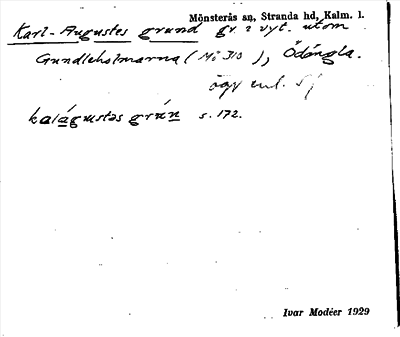 Mönsterås sn, Stranda hd, Kalm. l.
Karl-Augustes grund gr. i vyt. utom
Gundleholmarna (Mö 310), Ödängla.
ägv enl. Sj
kalágustəs grún s. 172.
Ivar Modéer 1929